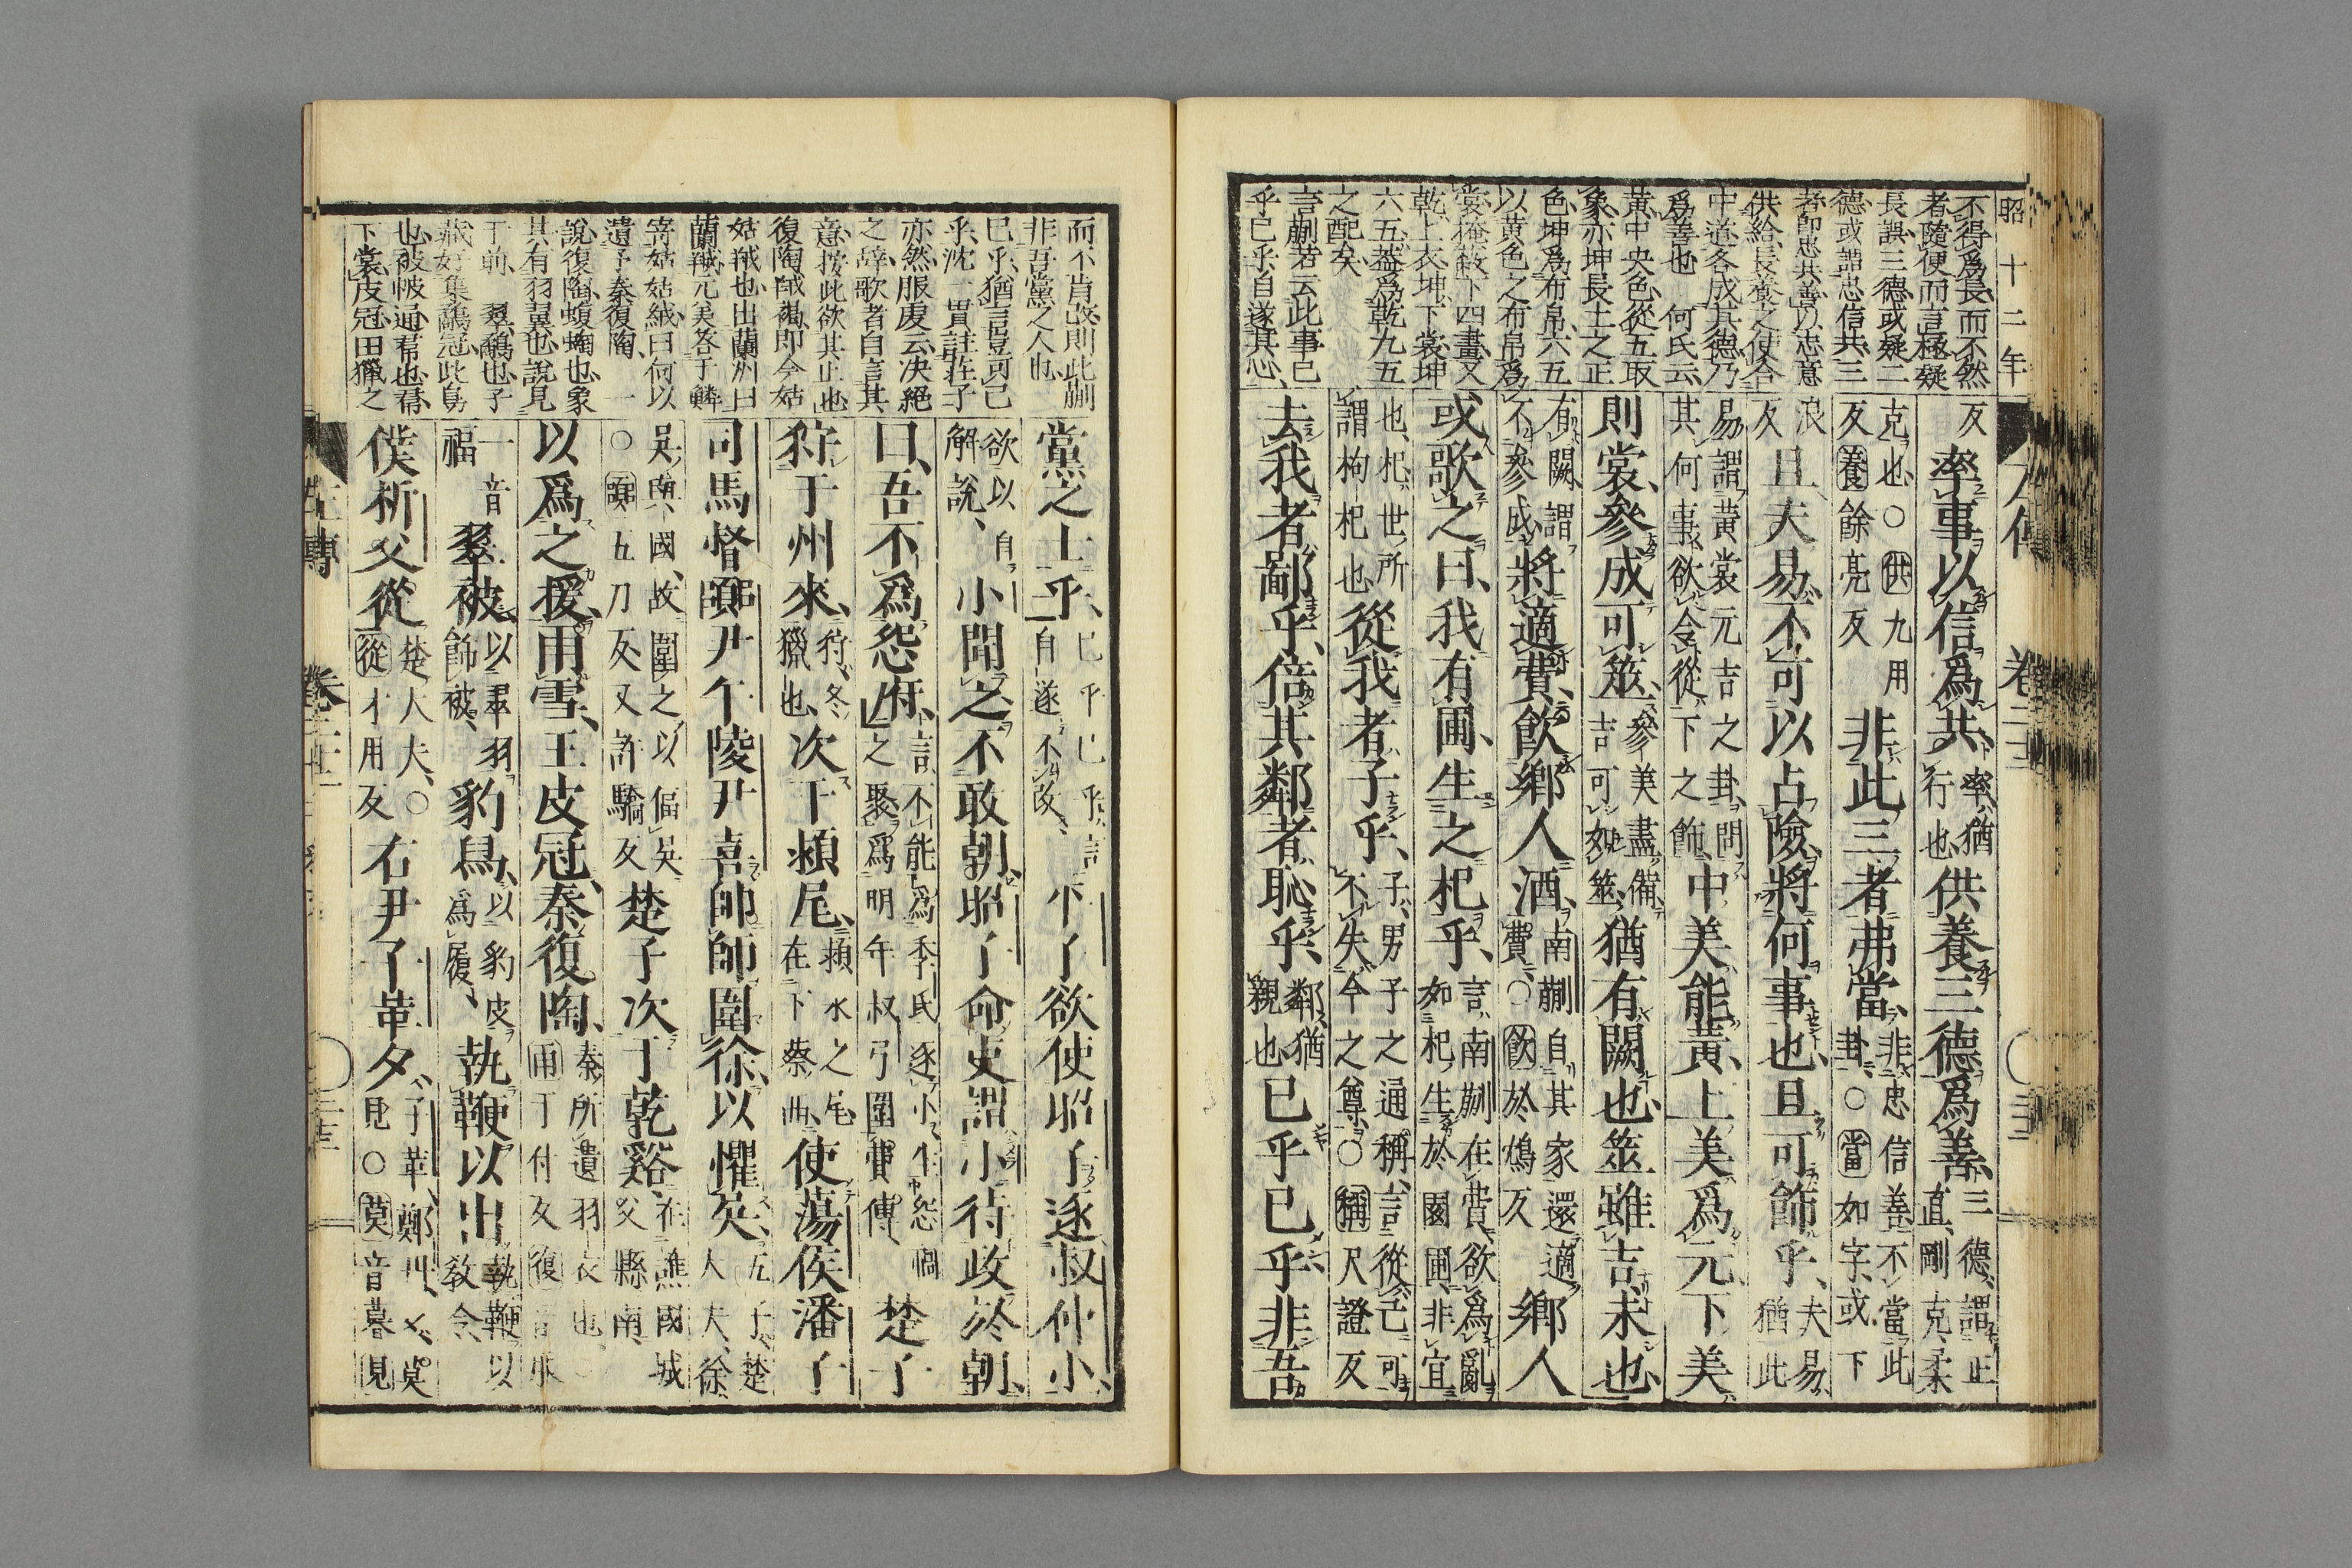 昭十二年
不得爲長而不然
者隨便而言極疑
長誤三德或疑二
德或謂忠信共三
者卽忠共善以志意
供給長養之使合
中道各成其德乃
爲善也 何氏云
黃中央色從五取
象亦坤長土之正
色坤爲布帛六五
以黃色之布帛爲
裳掩蔽下四畫又
乾上衣坤下裳坤
六五蓋爲乾九五
之配矣
言蒯若云此事已
乎已乎自遂其心
反率事以信爲共、率、猶行也、供養三德爲善、三德、謂正直、剛克、柔
克也、○供九用反養餘亮反非此三者弗當、非忠信善不當此卦、○當如字、或下
浪反且夫易、不可以占險、將何事也、且可飾乎、夫易、猶此
易、謂黃裳元吉之卦、問其何事、欲令從下之飾、中美能黃、上美爲元、下美
則裳、參成可筮、參美盡備、吉可如筮、猶有闕也、筮雖吉、未也、
有闕、謂不參成、將適費、飲鄉人酒、南蒯自其家還適費、○飲於鴆反鄉人
或歌之曰、我有圃、生之杞乎、言南蒯在費、欲爲亂、如杞生於園圃、非宜
也、杞、世所謂枸杞也、從我者、子乎、子、男子之通稱、言從己可不失今之尊、○稱尺證反
去我者鄙乎、倍其鄰者、恥乎、鄰、猶親也已乎已乎、非吾
而不肯改則此蒯
非吾黨之人也
已乎猶言豈可已
乎沈一貫註莊子
亦然服虔云决絕
之辭歌者自言其
意按此欲其止也
復陶絨褐卽今姑
姑羢也出蘭州曰
蘭羢元美荅于鱗
寄姑姑絨曰何以
遺予秦復陶 一
說復陶蝮蜪也象
其有羽翼也說見
于前 翠鷸也子
臧好集鷸冠此鳥
也被帔通帬也帬
下裳皮冠田獵之
黨之士乎、已乎已乎、言自遂不改、小子欲使昭子逐叔仲小、
欲以自解說、小聞之、不敢朝、昭子命吏謂小待政於朝、
曰、吾不爲怨府、言不能爲季氏逐小、生怨禍之聚、爲明年叔弓圍費傳楚子
狩于州來、狩、冬獵也、次于潁尾、潁水之尾在下蔡西、使蕩侯潘子
司馬督囂尹午陵尹喜帥師圍徐、以懼吳、五子、楚大夫、徐、
吳與國、故圍之、以偪吳○囂五刀反又許驕反楚子次于乾谿、在譙國城父縣南、
以爲之援、雨雪、王皮冠、秦復陶、秦所遺羽衣也、○雨于付反復音服
一音福翠被、以翠羽飾被、豹舄、以豹皮爲履、執鞭以出、執鞭以敎令、
僕析父從、楚人夫、○從才用反右尹子革夕、子革、鄭丹、夕、莫見○莫音暮見